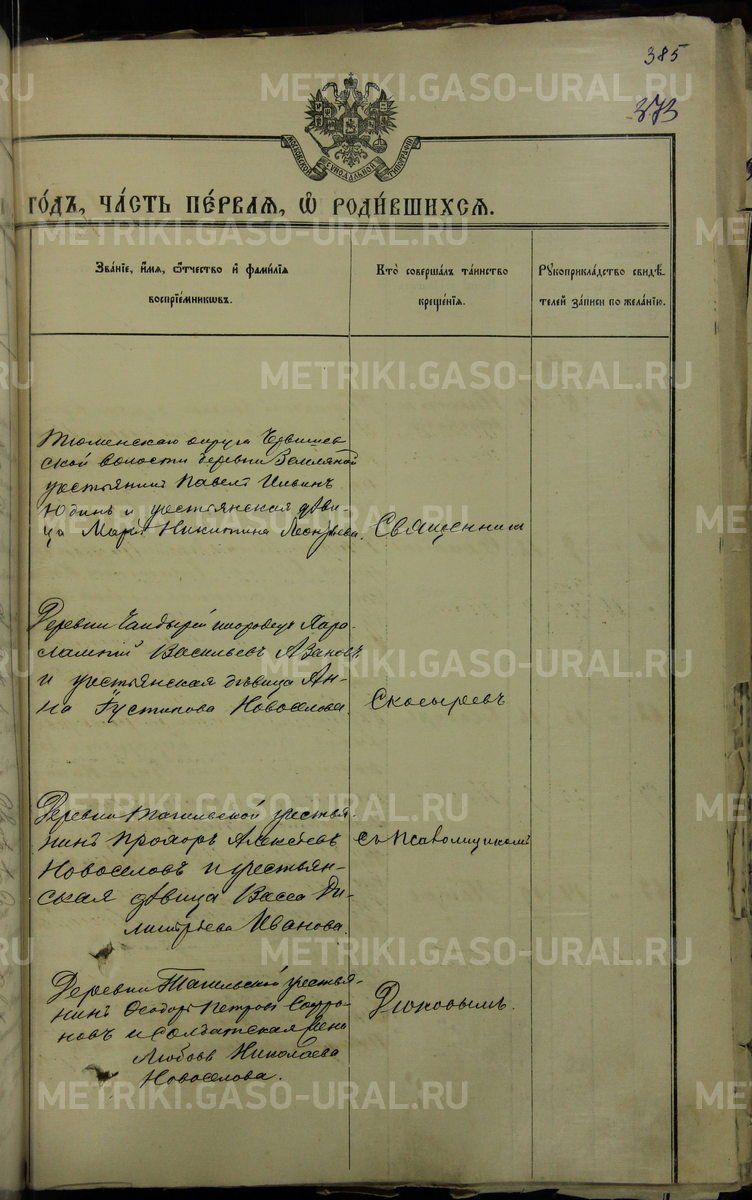 385
373
МОСКОВСКОЙ СѴНОДАЛЬНОЙ ТИПОГРАФІИ
ГО́ДЪ, ЧА́СТЬ ПЕ́РВАЯ, Ѡ҆ РОДИ́ВШИХСЯ.
Зва́нїе, и҆́мѧ, ѻ҆́тчество и҆ фами́лїѧ
воспрїе́мникѡвъ.
Кто̀ соверша́лъ та́инство
креще́нїѧ.
Рꙋкоприкла́дство свидѣ́-
телей за́писи по жела́нїю.
Тюменскаго округа Червишев
ской волости деревни Земляной
крестьянин Павелъ Ильинъ
Юдинъ и крестьянская дѣви-
ца Марія Никитина Леонтьева.
Священникъ
Деревни Чандырей инородецъ Хара-
лампій Васильевъ Азановъ
и крестьянская дѣвица Ан-
на Іустинова Новоселова.
Скосыревъ
Деревни Тагильской крестья-
нинъ Прохоръ Алексѣевъ
Новоселовъ и крестьян-
ская дѣвица Васса Ди-
митріева Иванова.
съ Псаломщикомъ
Деревни Тагильской крестья-
нинъ Ѳеодоръ Петровъ Софро-
новъ и солдатская жена
Любовь Николаева
Новоселова.
Дюковымъ.
METRIKI.GASO-URAL.RU